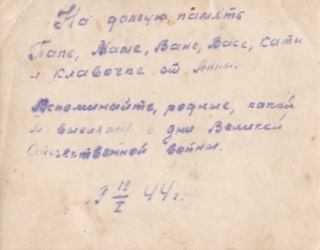 На долгую память
Папе, Маме, Ване, Васе, Кати
и Клавочке от Анны.
Вспоминайте, родные, какой
я выгляжу в дни Великой
Отечественной войны.
19/I 44 г.